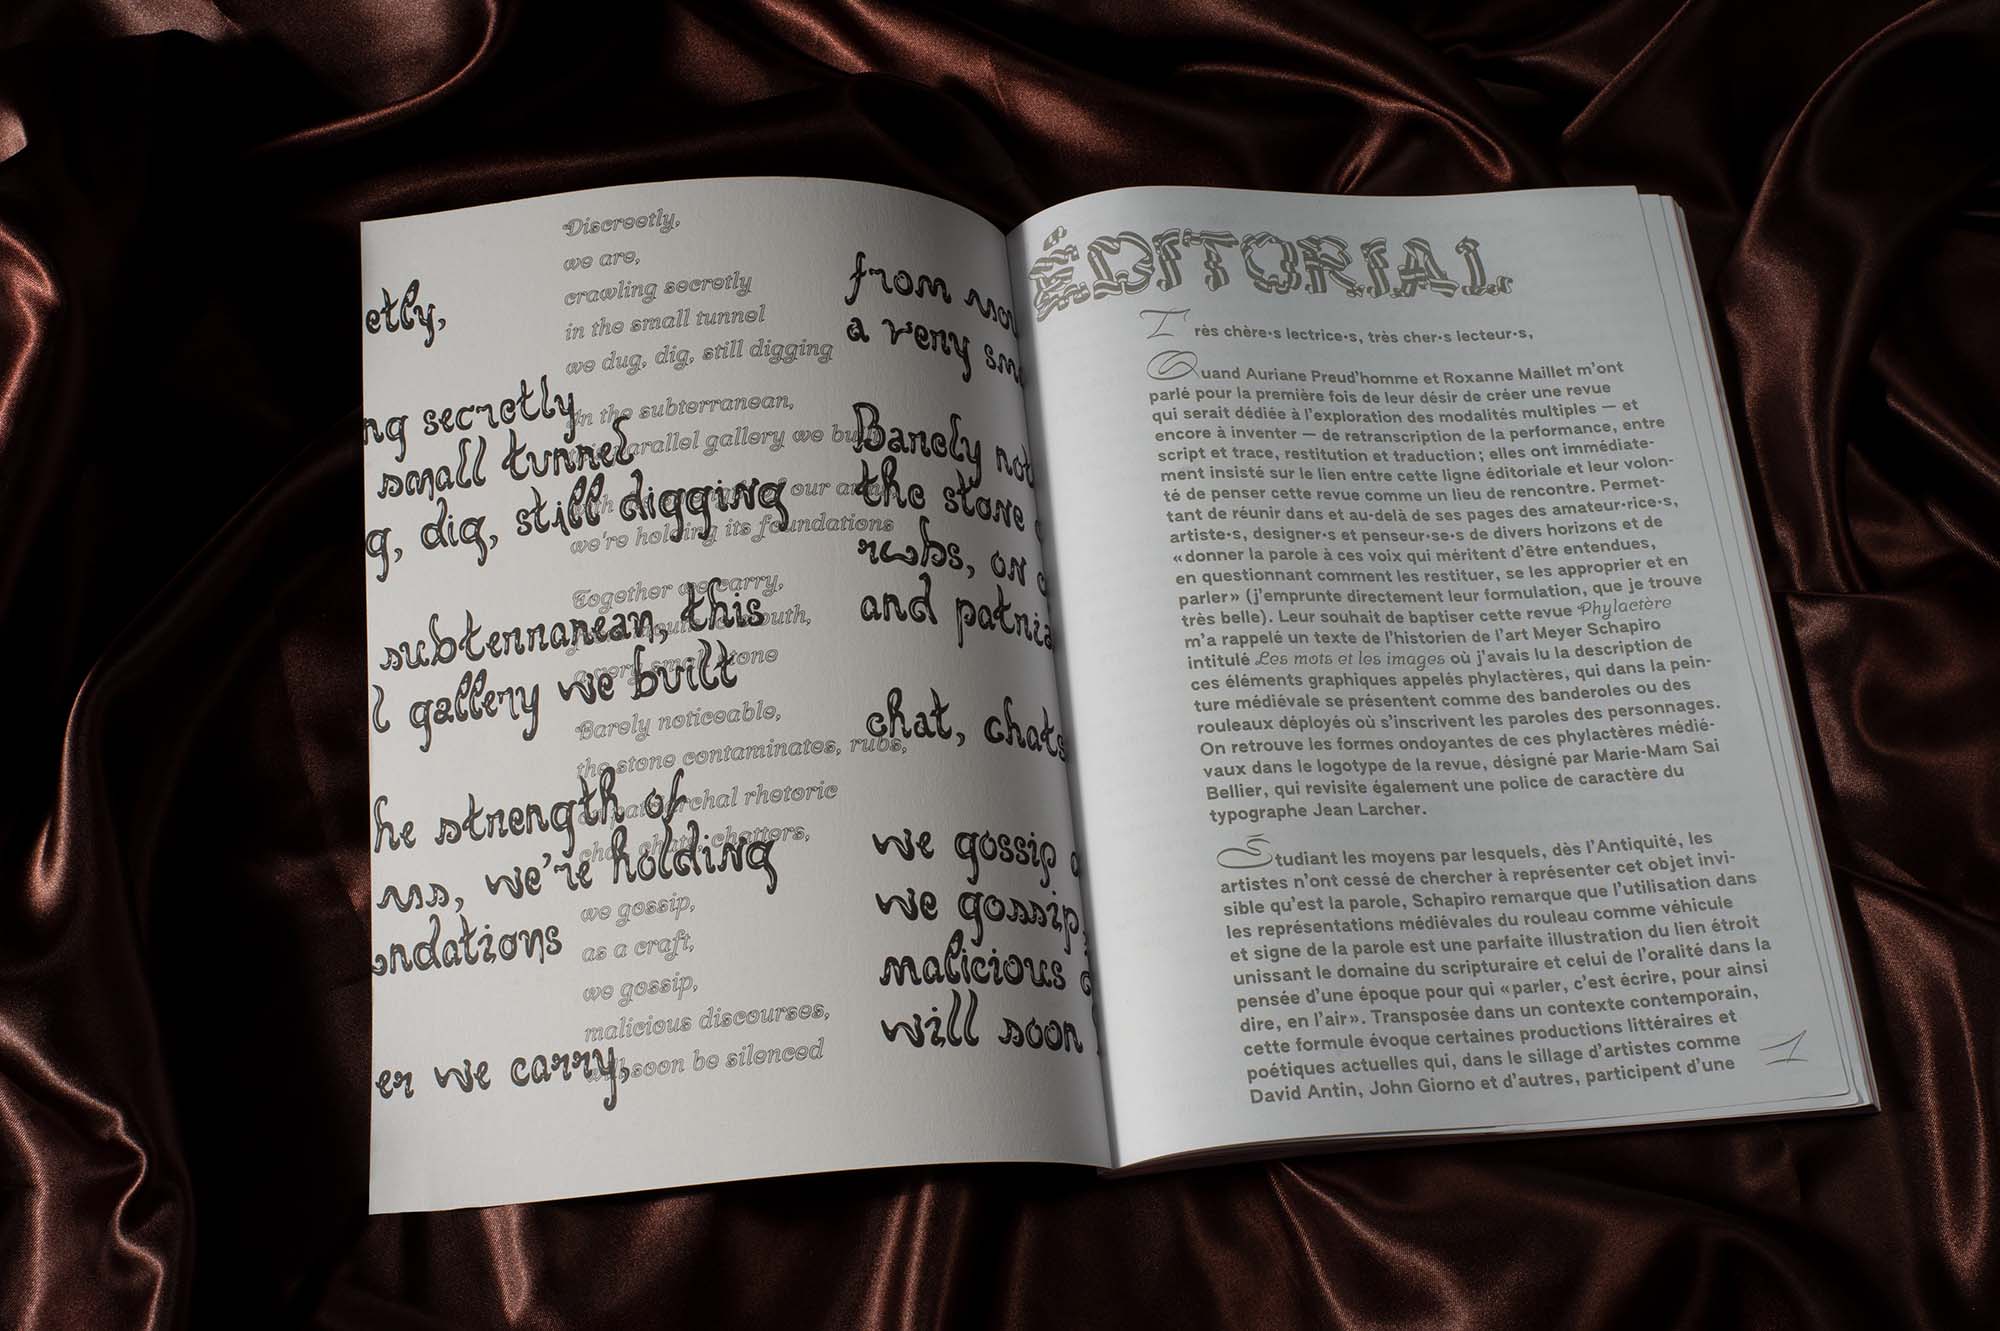 Discreetly,
we are,
crawling secretly
in the small tunnel
we dug, dig, still digging
in the subterranean,
parallel gallery we built
our arms,
we're holding its foundations
Together we carry,
mouth,
a very small stone
Barely noticeable,
the stone contaminates, rubs,
patriarchal rhetoric
chat, chats, chatters,
we gossip,
as a craft,
we gossip,
malicious discourses,
will soon be silenced
etly,
ng secretly
small tunnel
g, dig, still digging
subterranean, this
l gallery we built
he strength of
ms, we're holding
undations
er we carry,
from mou
a very sma
Barely not
the stone
rubs, on
and patria
chat, chats
we gossip
we gossip,
malicious
will soon
ÉDITORIAL
Très chère·s lectrice·s, très cher·s lecteur·s,
Quand Auriane Preud'homme et Roxanne Maillet m'ont
parlé pour la première fois de leur désir de créer une revue
qui serait dédiée à l'exploration des modalités multiples — et
encore à inventer — de retranscription de la performance, entre
script et trace, restitution et traduction ; elles ont immédiate-
ment insisté sur le lien entre cette ligne éditoriale et leur volon-
té de penser cette revue comme un lieu de rencontre. Permet-
tant de réunir dans et au-delà de ses pages des amateur·rice·s,
artiste·s, designer·s et penseur·se·s de divers horizons et de
« donner la parole à ces voix qui méritent d'être entendues,
en questionnant comment les restituer, se les approprier et en
parler » (j'emprunte directement leur formulation, que je trouve
très belle). Leur souhait de baptiser cette revue Phylactère
m'a rappelé un texte de l'historien de l'art Meyer Schapiro
intitulé Les mots et les images où j'avais lu la description de
ces éléments graphiques appelés phylactères, qui dans la pein-
ture médiévale se présentent comme des banderoles ou des
rouleaux déployés où s'inscrivent les paroles des personnages.
On retrouve les formes ondoyantes de ces phylactères médié-
vaux dans le logotype de la revue, désigné par Marie-Mam Sai
Bellier, qui revisite également une police de caractère du
typographe Jean Larcher.
Studiant les moyens par lesquels, dès l'Antiquité, les
artistes n'ont cessé de chercher à représenter cet objet invi-
sible qu'est la parole, Schapiro remarque que l'utilisation dans
les représentations médiévales du rouleau comme véhicule
et signe de la parole est une parfaite illustration du lien étroit
unissant le domaine du scripturaire et celui de l'oralité dans la
pensée d'une époque pour qui « parler, c'est écrire, pour ainsi
dire, en l'air ». Transposée dans un contexte contemporain,
cette formule évoque certaines productions littéraires et
poétiques actuelles qui, dans le sillage d'artistes comme
David Antin, John Giorno et d'autres, participent d'une
1